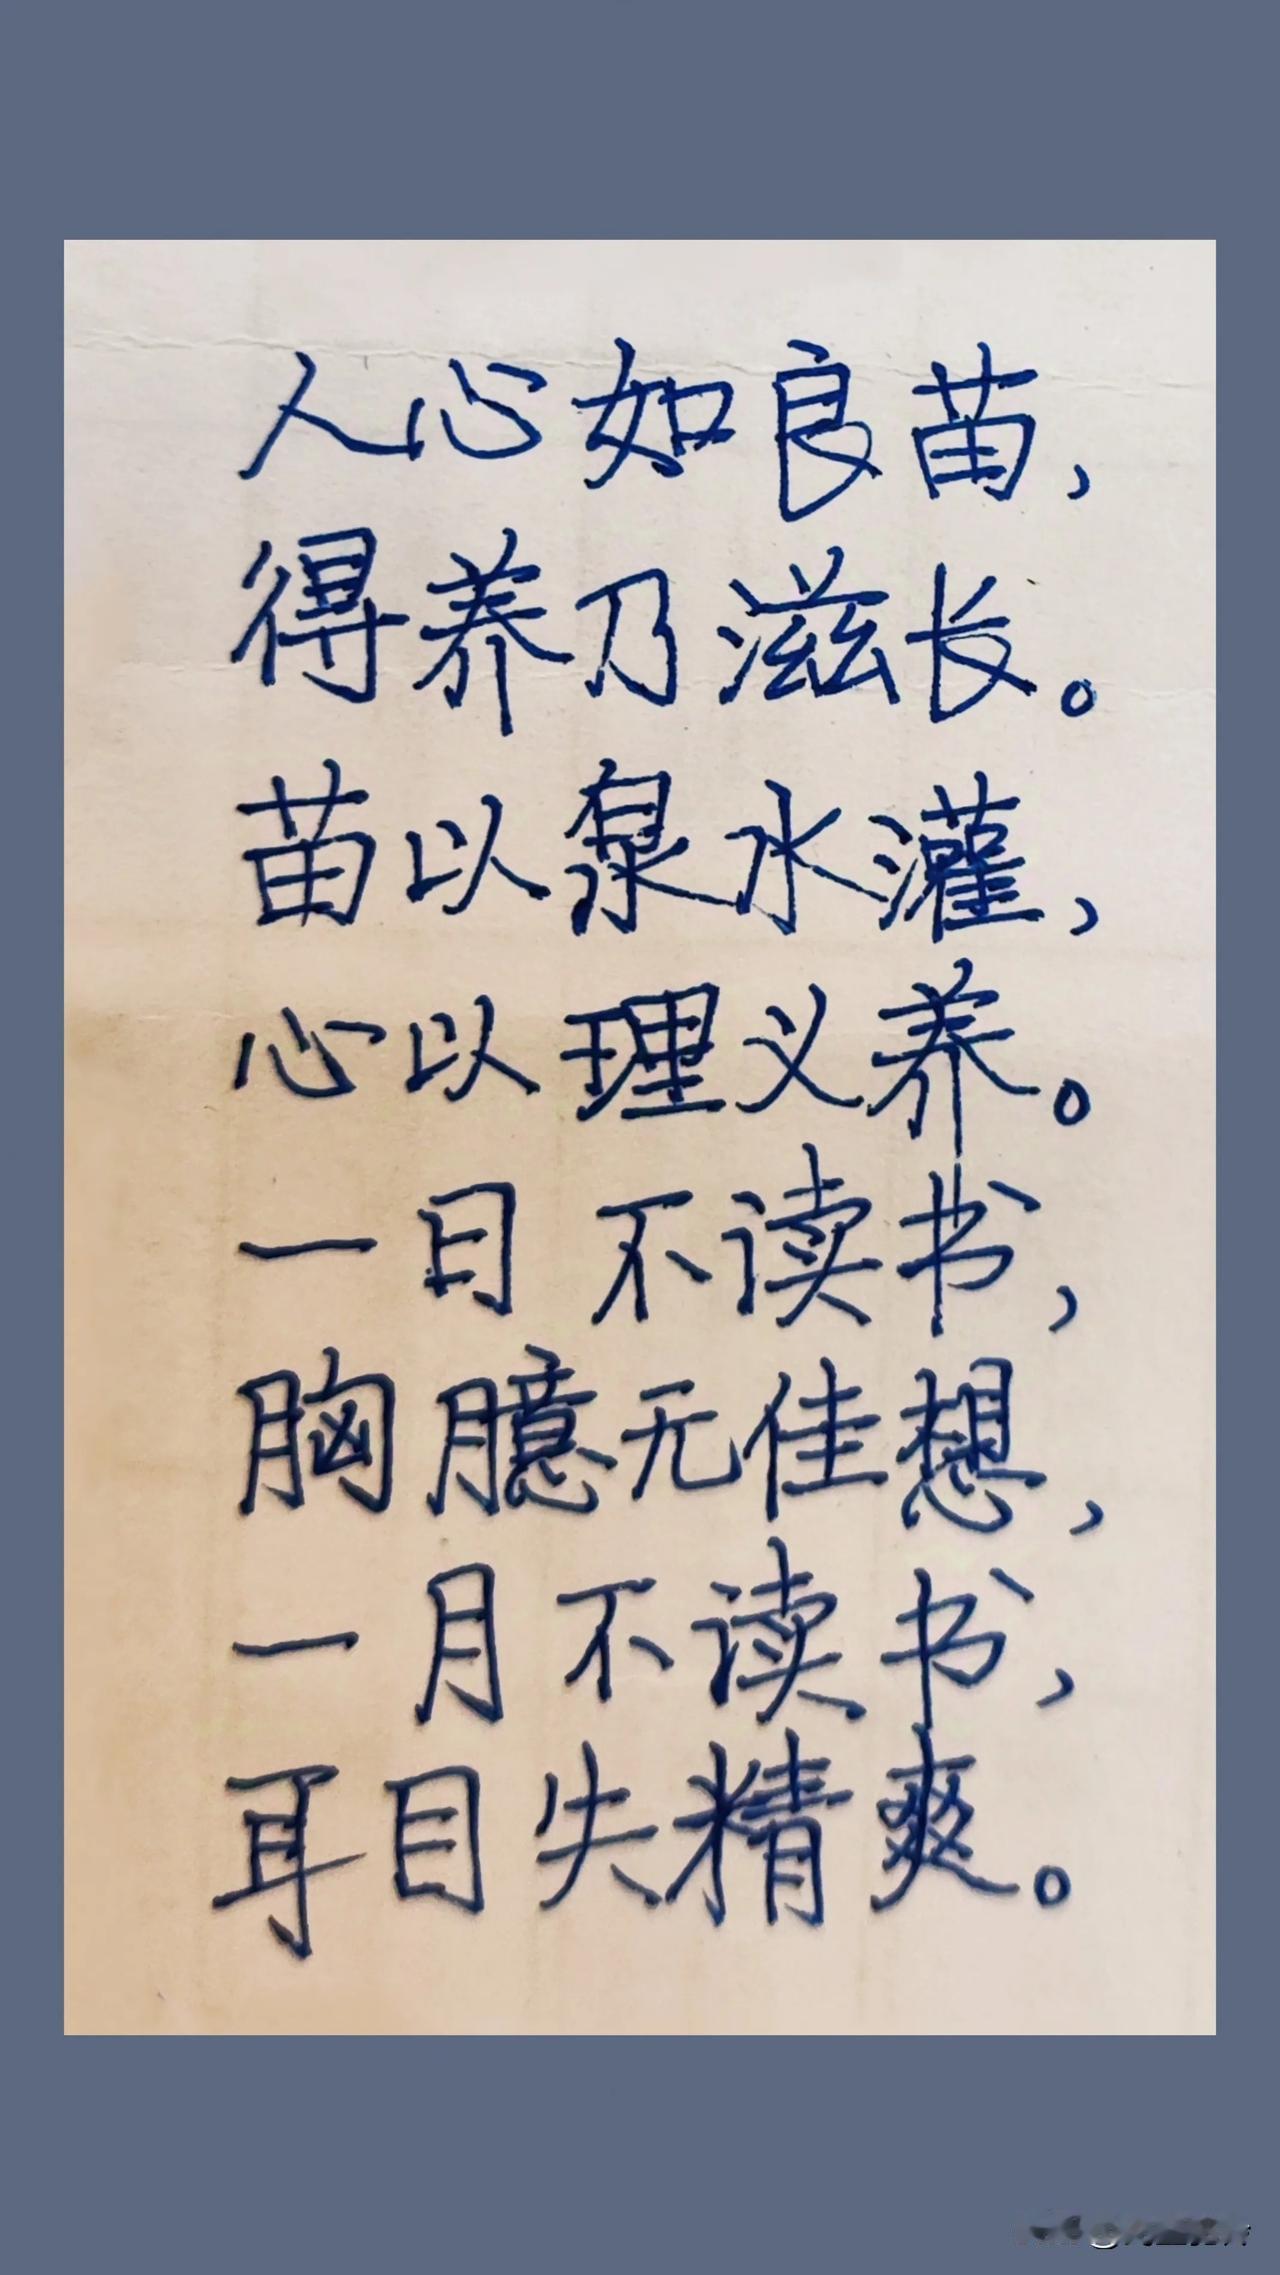 人心如良苗，
得养乃滋长。
苗以泉水灌，
心以理义养。
一日不读书，
胸臆无佳想，
一月不读书，
耳目失精爽。